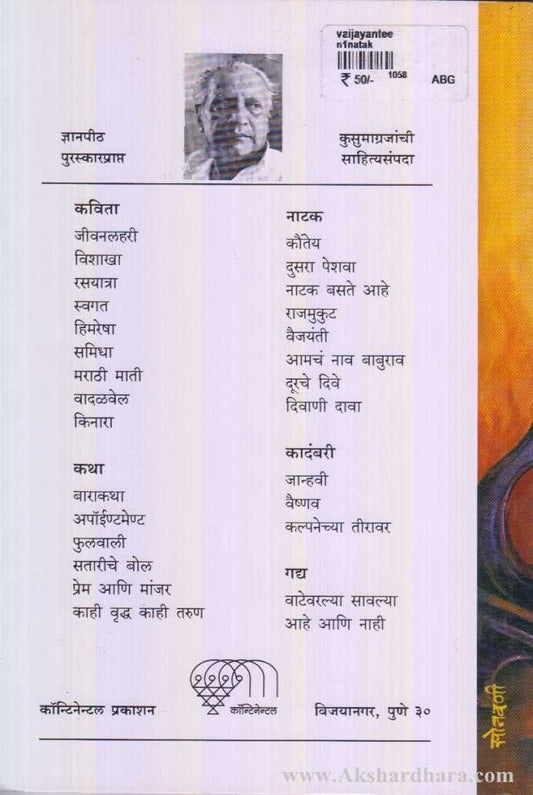 vaijayantee
n1natak
₹ 50/- 1058 ABG
ज्ञानपीठ
पुरस्कारप्राप्त
कुसुमाग्रजांची
साहित्यसंपदा
कविता
जीवनलहरी
विशाखा
रसयात्रा
स्वगत
हिमरेषा
समिधा
मराठी माती
वादळवेल
किनारा
कथा
बाराकथा
अपॉईण्टमेण्ट
फुलवाली
सतारीचे बोल
प्रेम आणि मांजर
काही वृद्ध काही तरुण
नाटक
कौंतेय
दुसरा पेशवा
नाटक बसते आहे
राजमुकुट
वैजयंती
आमचं नाव बाबुराव
दूरचे दिवे
दिवाणी दावा
कादंबरी
जान्हवी
वैष्णव
कल्पनेच्या तीरावर
गद्य
वाटेवरल्या सावल्या
आहे आणि नाही
कॉन्टिनेन्टल प्रकाशन
कॉन्टिनेन्टल
विजयानगर, पुणे ३०
सोनवणी
www.Akshardhara.com